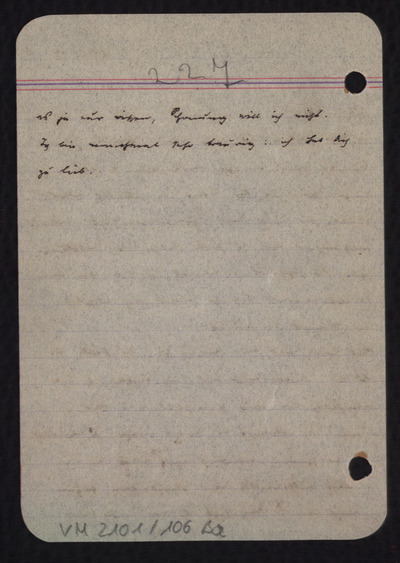 227
es ja nur wissen, Schonung will ich nicht.
Ich bin manchmal sehr traurig: ich hab Dich
zu lieb.
VM 2101/106 Ba